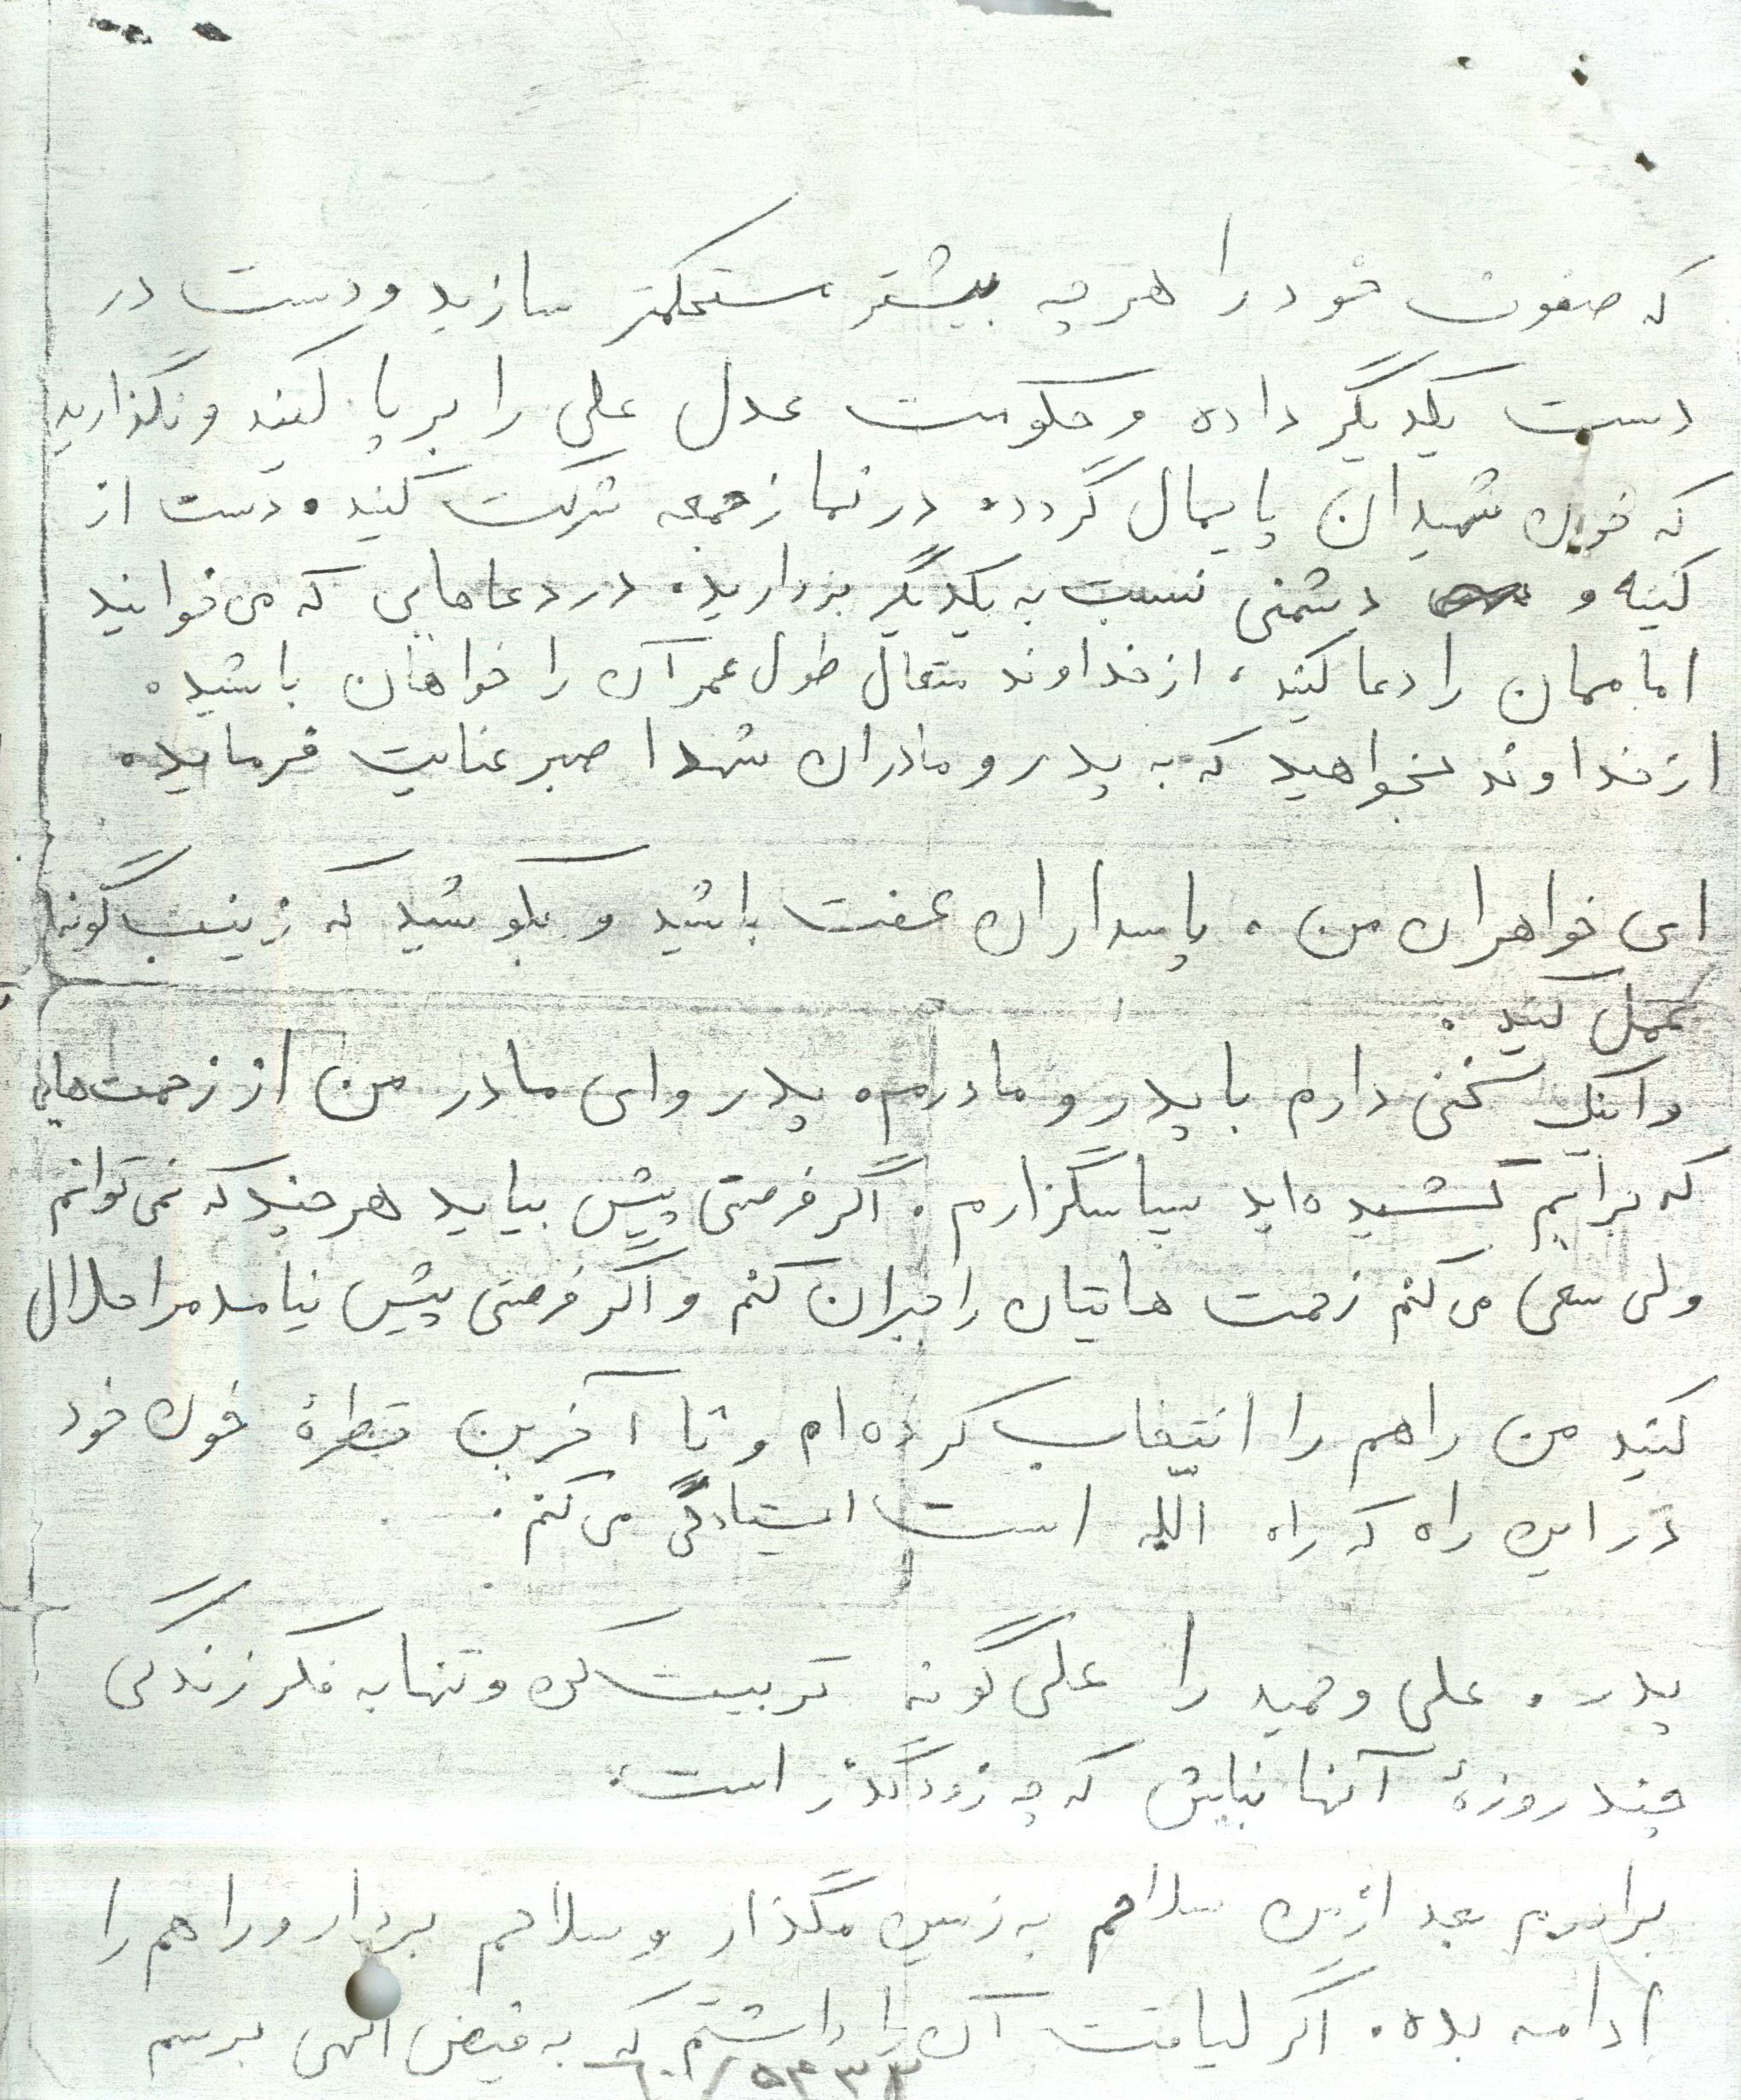 که صفوف خود را هر چه بیشتر مستحکمتر سازید و دست در
دست یکدیگر داده و حکومت عدل علی را بر پا کنید و نگذارید
که خون شهیدان پایمال گردد. در نماز جمعه شرکت کنید. دست از
کینه و دشمنی نسبت به یکدیگر بردارید. در دعاهایی که می‌خوانید
اماممان را دعا کنید، از خداوند متعال طول عمر آن را خواهان باشید.
از خداوند بخواهید که به پدر و مادران شهدا صبر عنایت فرماید.
ای خواهران من. پاسداران عفت باشید و بکوشید که زینب‌گونه
عمل کنید.
و اینک سخنی دارم با پدر و مادرم. پدر و ای مادر من از زحمت‌هایی
که برایم کشیده‌اید سپاسگزارم. اگر فرصتی پیش بیاید هر چند که نمی‌توانم
ولی سعی می‌کنم زحمت هایتان را جبران کنم و اگر فرصتی پیش نیامد مرا حلال
کنید من راهم را انتخاب کرده‌ام و تا آخرین قطرهٔ خون خود
در این راه که راه اللّه است ایستادگی می‌کنم.
پدر. علی و حمید را علی گونه تربیت کن و تنها به فکر زندگی
چند روزهٔ آنها نباش که چه زودگذر است.
برادرم بعد از من سلاحم به زمین مگذار و سلاحم بردار و راهم را
ادامه بده. اگر لیاقت آن را داشتم که به فیض الهی برسم